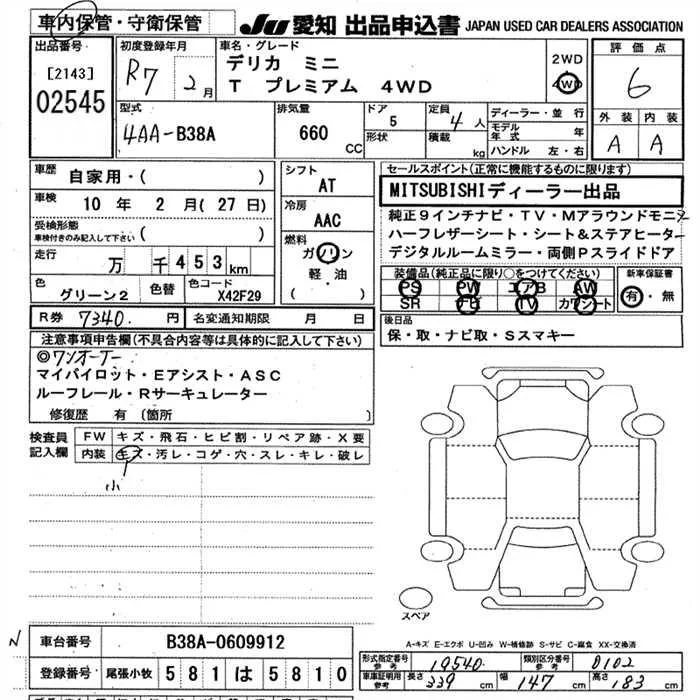 車内保管・守衛保管 JU 愛知 出品申込書 JAPAN USED CAR DEALERS ASSOCIATION
出品番号 初度登録年月 車名・グレード 評価点
[2143] R7 2月 デリカ ミニ 2WD 6
02545 T プレミアム 4WD 4WD
型式 排気量 ドア 定員 ディーラー・並行 外装 内装
4AA-B38A 660 CC 5 4人 モデル年式 年 A A
形状 積載 kg ハンドル 左・右
車歴 自家用・( ) シフト セールスポイント(正常に機能するものに限ります)
車検 10年 2月(27日) AT MITSUBISHIディーラー出品
受検形態 冷房 純正9インチナビ・TV・Mアラウンドモニタ
車検付きのみ記入して下さい ( ) AAC ハーフレザーシート・シート&ステアヒーター
走行 万 千453km 燃料 デジタルルームミラー・両側Pスライドドア
ガソリン 装備品(純正品に限り○をつけてください) 新車保証書
色 色替 色コード 軽・油 PS PW エアB AW 有・無
グリーン2 X42F29 ( ) SR ナビ TV カワシート
R券 7340.円 名変通知期限 月 日 後日品
注意事項申告欄(不具合内容等は具体的に記入して下さい) 保・取・ナビ取・Sスマキー
◎ワンオーナー
マイパイロット・Eアシスト・ASC
ルーフレール・Rサーキュレーター
修復歴 有(箇所 )
検査員 FW キズ・飛石・ヒビ割・リペア跡・X要
記入欄 内装 キズ・汚レ・コゲ・穴・スレ・キレ・破レ
小
スペア
N 車台番号 B38A-0609912 A-キズ E-エクボ U-凹み W-補修跡 S-サビ C-腐食 XX-交換済
登録番号 尾張小牧 581は5810 形式指定番号 参考 19540. 類別区分番号 参考 0102
車庫証明用 参考 長さ 339 cm 幅 147 cm 高さ 183 cm